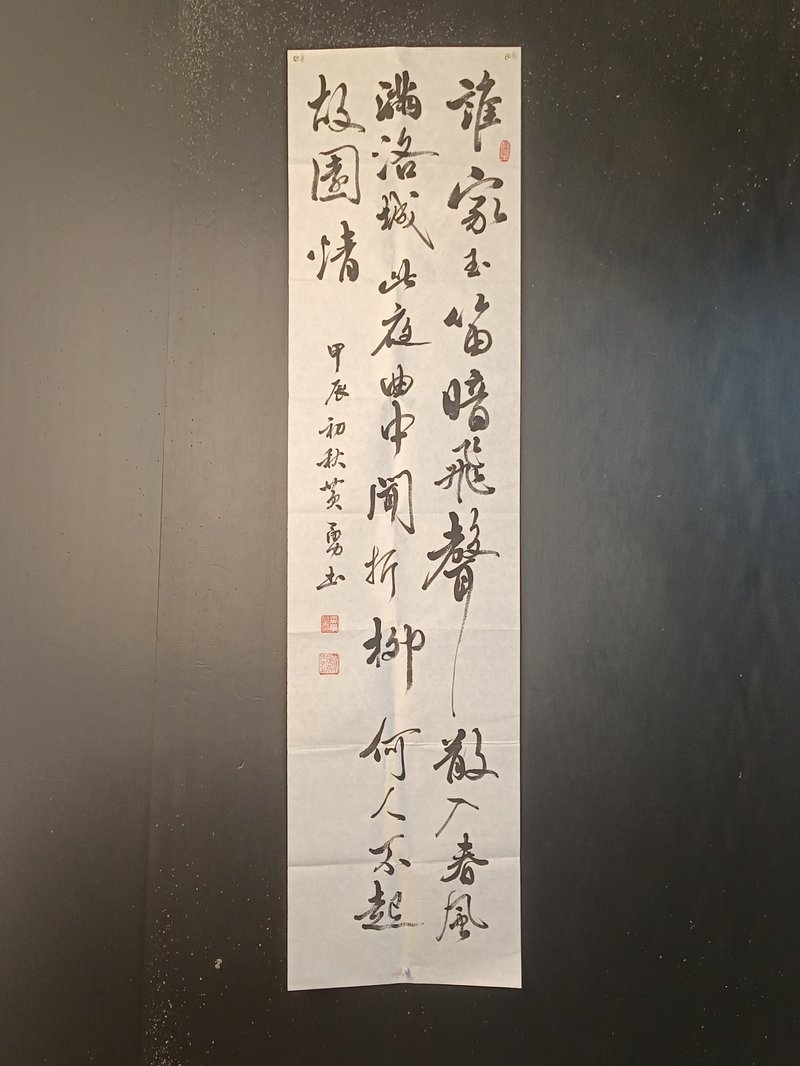 誰家玉笛暗飛聲散入春風
滿洛城此夜曲中聞折柳何人不起
故園情
甲辰初秋黄勇书